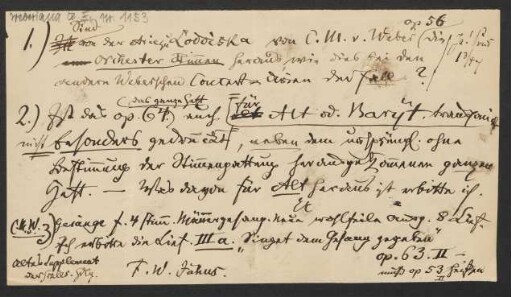 Weberiana Cl. Nr. 1153
op 56
Sind
1.) von der Lodoiska von C. M. v. Weber
Orchester Stimmen heraus, wie dies bei den
andern Weberschen Concert-Arien der Fall?
das ganze Heft
für
2.) Ist das op 64 auch Alt od. Baryt.
nicht besonders gedruckt, neben dem ursprüngl. ohne
Bestimmung der Stimmgattung herausgekommenen ganzen
Heft. — Was davon für Alt heraus ist erbitte ich.
C.M.W. 3) Gesänge f. 4 stimm. Männergesang. Neue wohlfeile Ausg. 8 Lief.
Ich erbitte die Lief. III a. "Singet dem Gesang
op. 63. II —
F. W. Jähns.
muß op 53 heißen
II